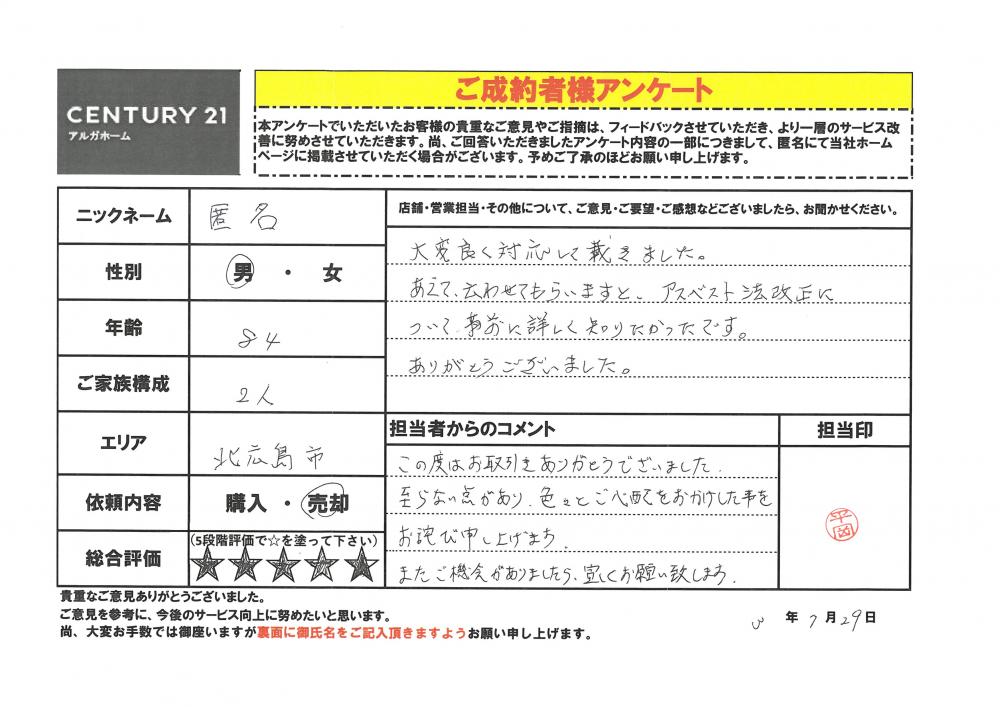 CENTURY 21
アルガホーム
ご成約者様アンケート
本アンケートでいただいたお客様の貴重なご意見やご指摘は、フィードバックさせていただき、より一層のサービス改
善に努めさせていただきます。尚、ご回答いただきましたアンケート内容の一部につきまして、匿名にて当社ホーム
ページに掲載させていただく場合がございます。予めご了承のほどお願い申し上げます。
ニックネーム
匿名
性別
男 ・ 女
年齢
84
ご家族構成
2人
エリア
北広島市
依頼内容
購入 ・ 売却
総合評価
(5段階評価で☆を塗って下さい)
★★★★★
店舗・営業担当・その他について、ご意見・ご要望・ご感想などございましたら、お聞かせください。
大変良く対応して載きました。
あえて、云わせてもらいますと、アスベスト法改正に
ついて、事前に詳しく知りたかったです。
ありがとうございました。
担当者からのコメント
この度はお取引きありがとうございました.
至らない点があり、色々とご心配をおかけした事を
お詫び申し上げます.
またご機会がありましたら、宜しくお願い致します.
担当印
平岡
貴重なご意見ありがとうございました。
ご意見を参考に、今後のサービス向上に努めたいと思います。
尚、大変お手数では御座いますが裏面に御氏名をご記入頂きますようお願い申し上げます。
3 年 7 月 29 日